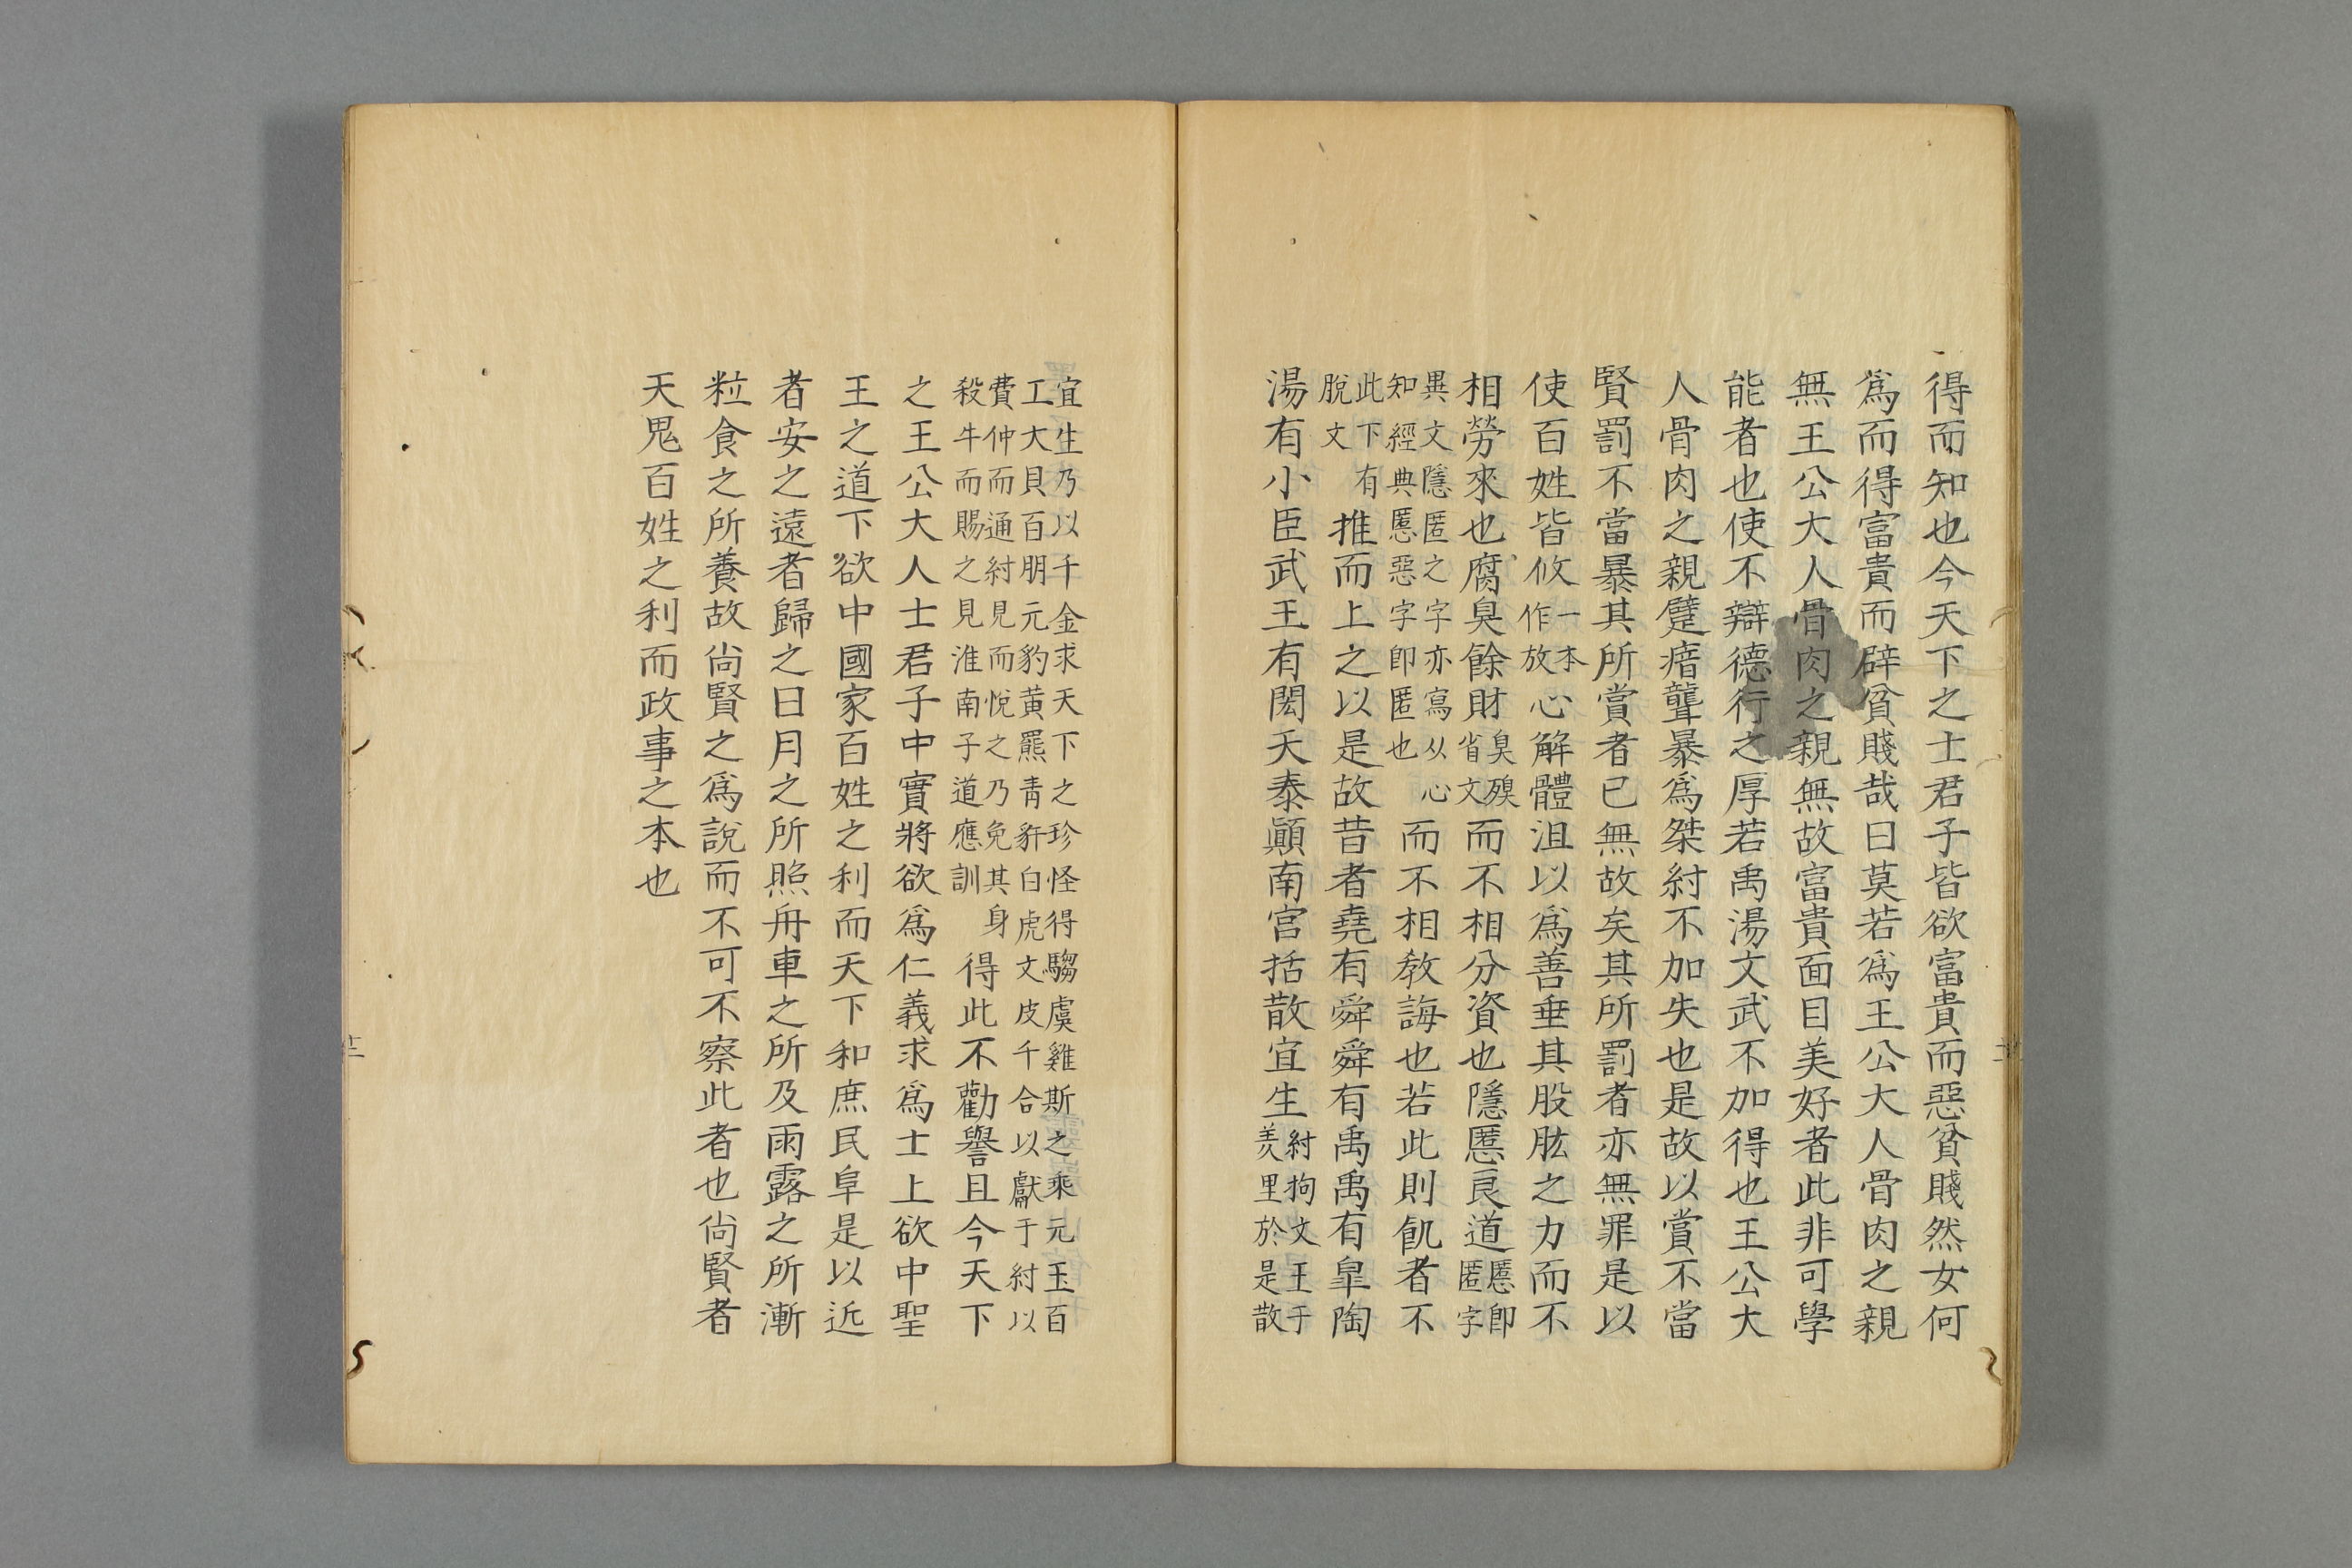 得而知也今天下之士君子皆欲富貴而惡貧賤然女何
爲而得富貴而辟貧賤哉曰莫若爲王公大人骨肉之親
無王公大人骨肉之親無故富貴面目美好者此非可學
能者也使不辯德行之厚若禹湯文武不加得也王公大
人骨肉之親躄瘖聾暴爲桀紂不加失也是故以賞不當
賢罰不當暴其所賞者已無故矣其所罰者亦無罪是以
使百姓皆攸一本作放心解體沮以爲善垂其股肱之力而不
相勞來也腐臭餘財臭殠省文而不相分資也隱慝良道慝卽匿字
異文隱匿之字亦寫从心知經典慝惡字卽匿也而不相教誨也若此則飢者不
此下有脫文推而上之以是故昔者堯有舜舜有禹禹有皐陶
湯有小臣武王有閎夭泰顚南宮括散宜生紂拘文王于羑里於是散
宜生乃以千金求天下之珍怪得騶虞雞斯之乘元玉百工大貝百朋元豹黃羆青豻白虎文皮千合以獻于紂以
費仲而通紂見而悅之乃免其身殺牛而賜之見淮南子道應訓得此不勸譽且今天下
之王公大人士君子中實將欲爲仁義求爲士上欲中聖
王之道下欲中國家百姓之利而天下和庶民阜是以近
者安之遠者歸之日月之所照舟車之所及雨露之所漸
粒食之所養故尙賢之爲說而不可不察此者也尙賢者
天鬼百姓之利而政事之本也